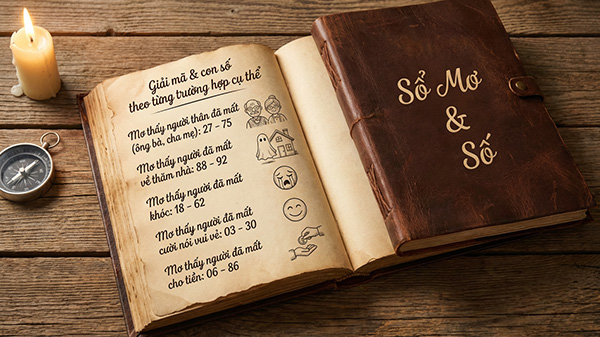 Giải mã & con số
theo từng trường hợp cụ thể
Mơ thấy người thân đã mất
(ông bà, cha mẹ): 27 - 75
Mơ thấy người đã mất
về thăm nhà: 88 - 92
Mơ thấy người đã mất
khóc: 18 - 62
Mơ thấy người đã mất
cười nói vui vẻ: 03 - 30
Mơ thấy người đã mất
cho tiền: 06 - 86
Sổ Mơ
&
Số